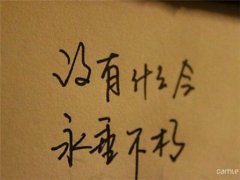 没有什么会
永垂不朽
camile